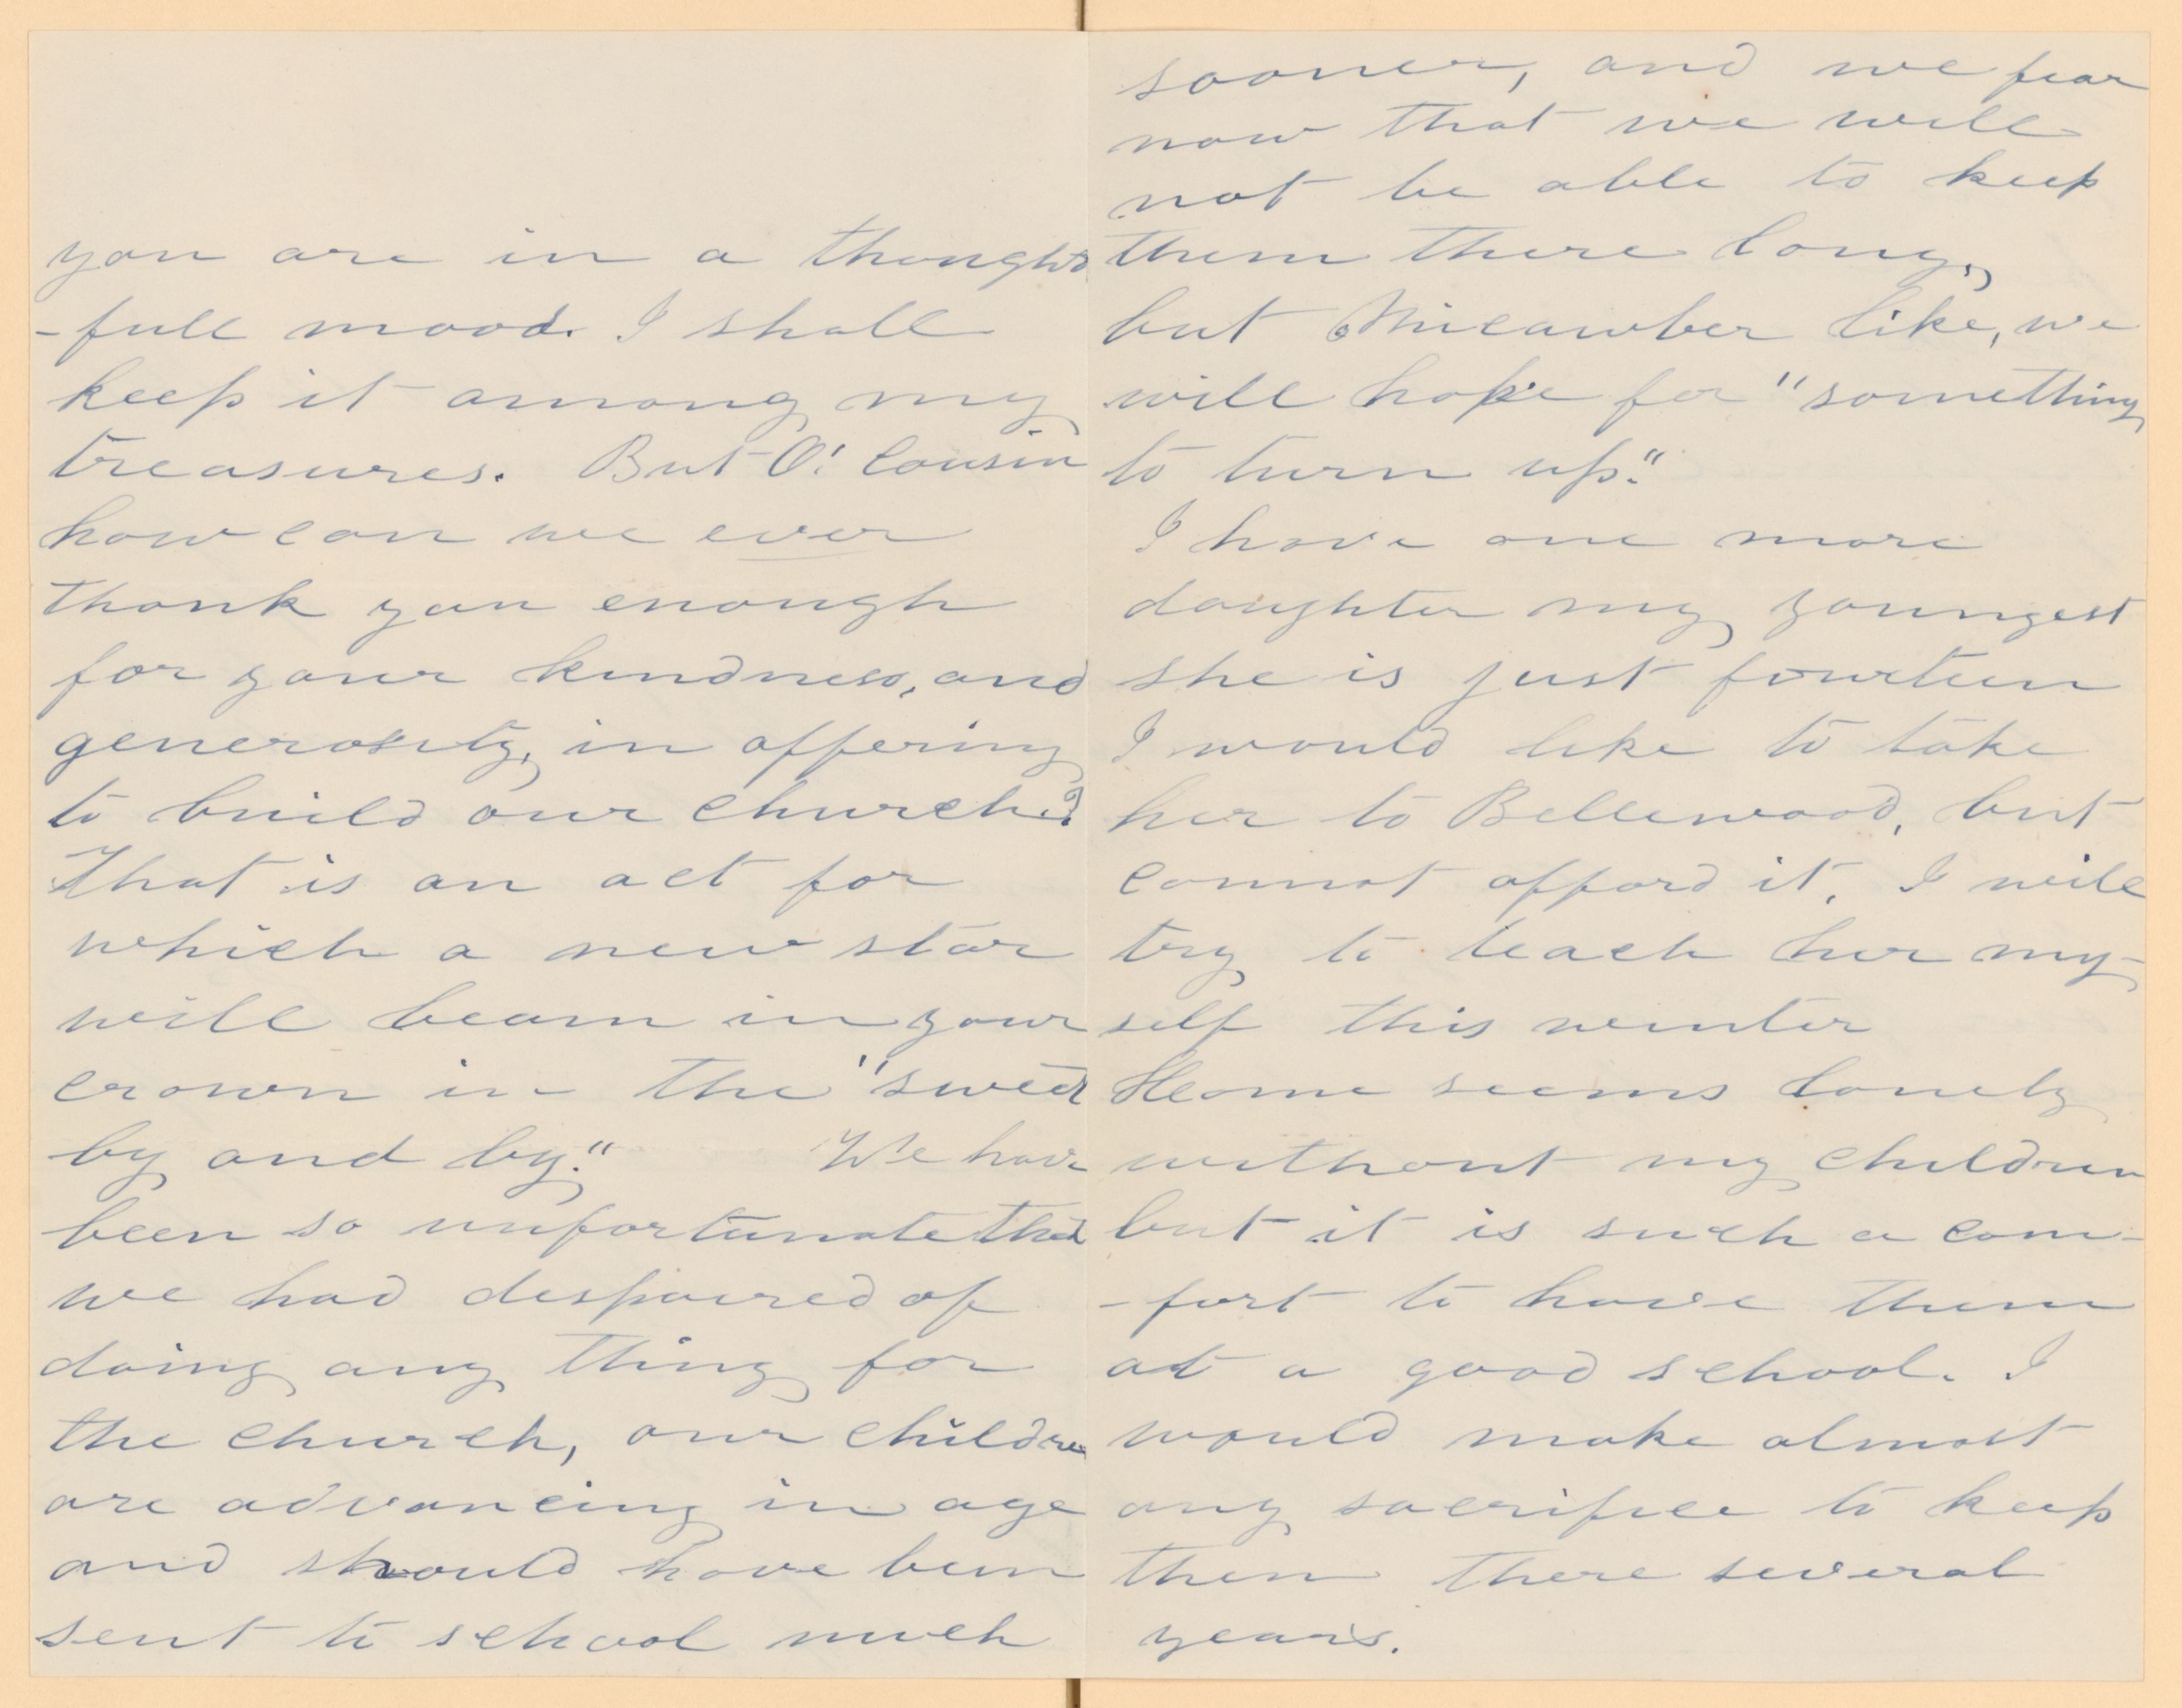 you are in a thought
-full mood. I shall
keep it among my
treasures. But O! Cousin
how can we ever
thank you enough
for your kindness, and
generosity, in offering
to build our church?
That is an act for
which a new star
will beam in your
crown in the "sweet
by and by." We have
been so unfortunate that
we had despaired of
doing any thing for
the church, our children
are advancing in age
and should have been
sent to school much
sooner, and we fear
now that we will
not be able to keep
them there long,
but Micawber like, we
will hope for "something
to turn up."
I have one more
daughter my youngest
she is just fourteen
I would like to take
her to Bellewood, but
cannot afford it. I will
try to teach her my-
self this winter
Home seems lonely
without my children
but it is such a com-
-fort to have them
at a good school. I
would make almost
any sacrifice to keep
them there several
years.